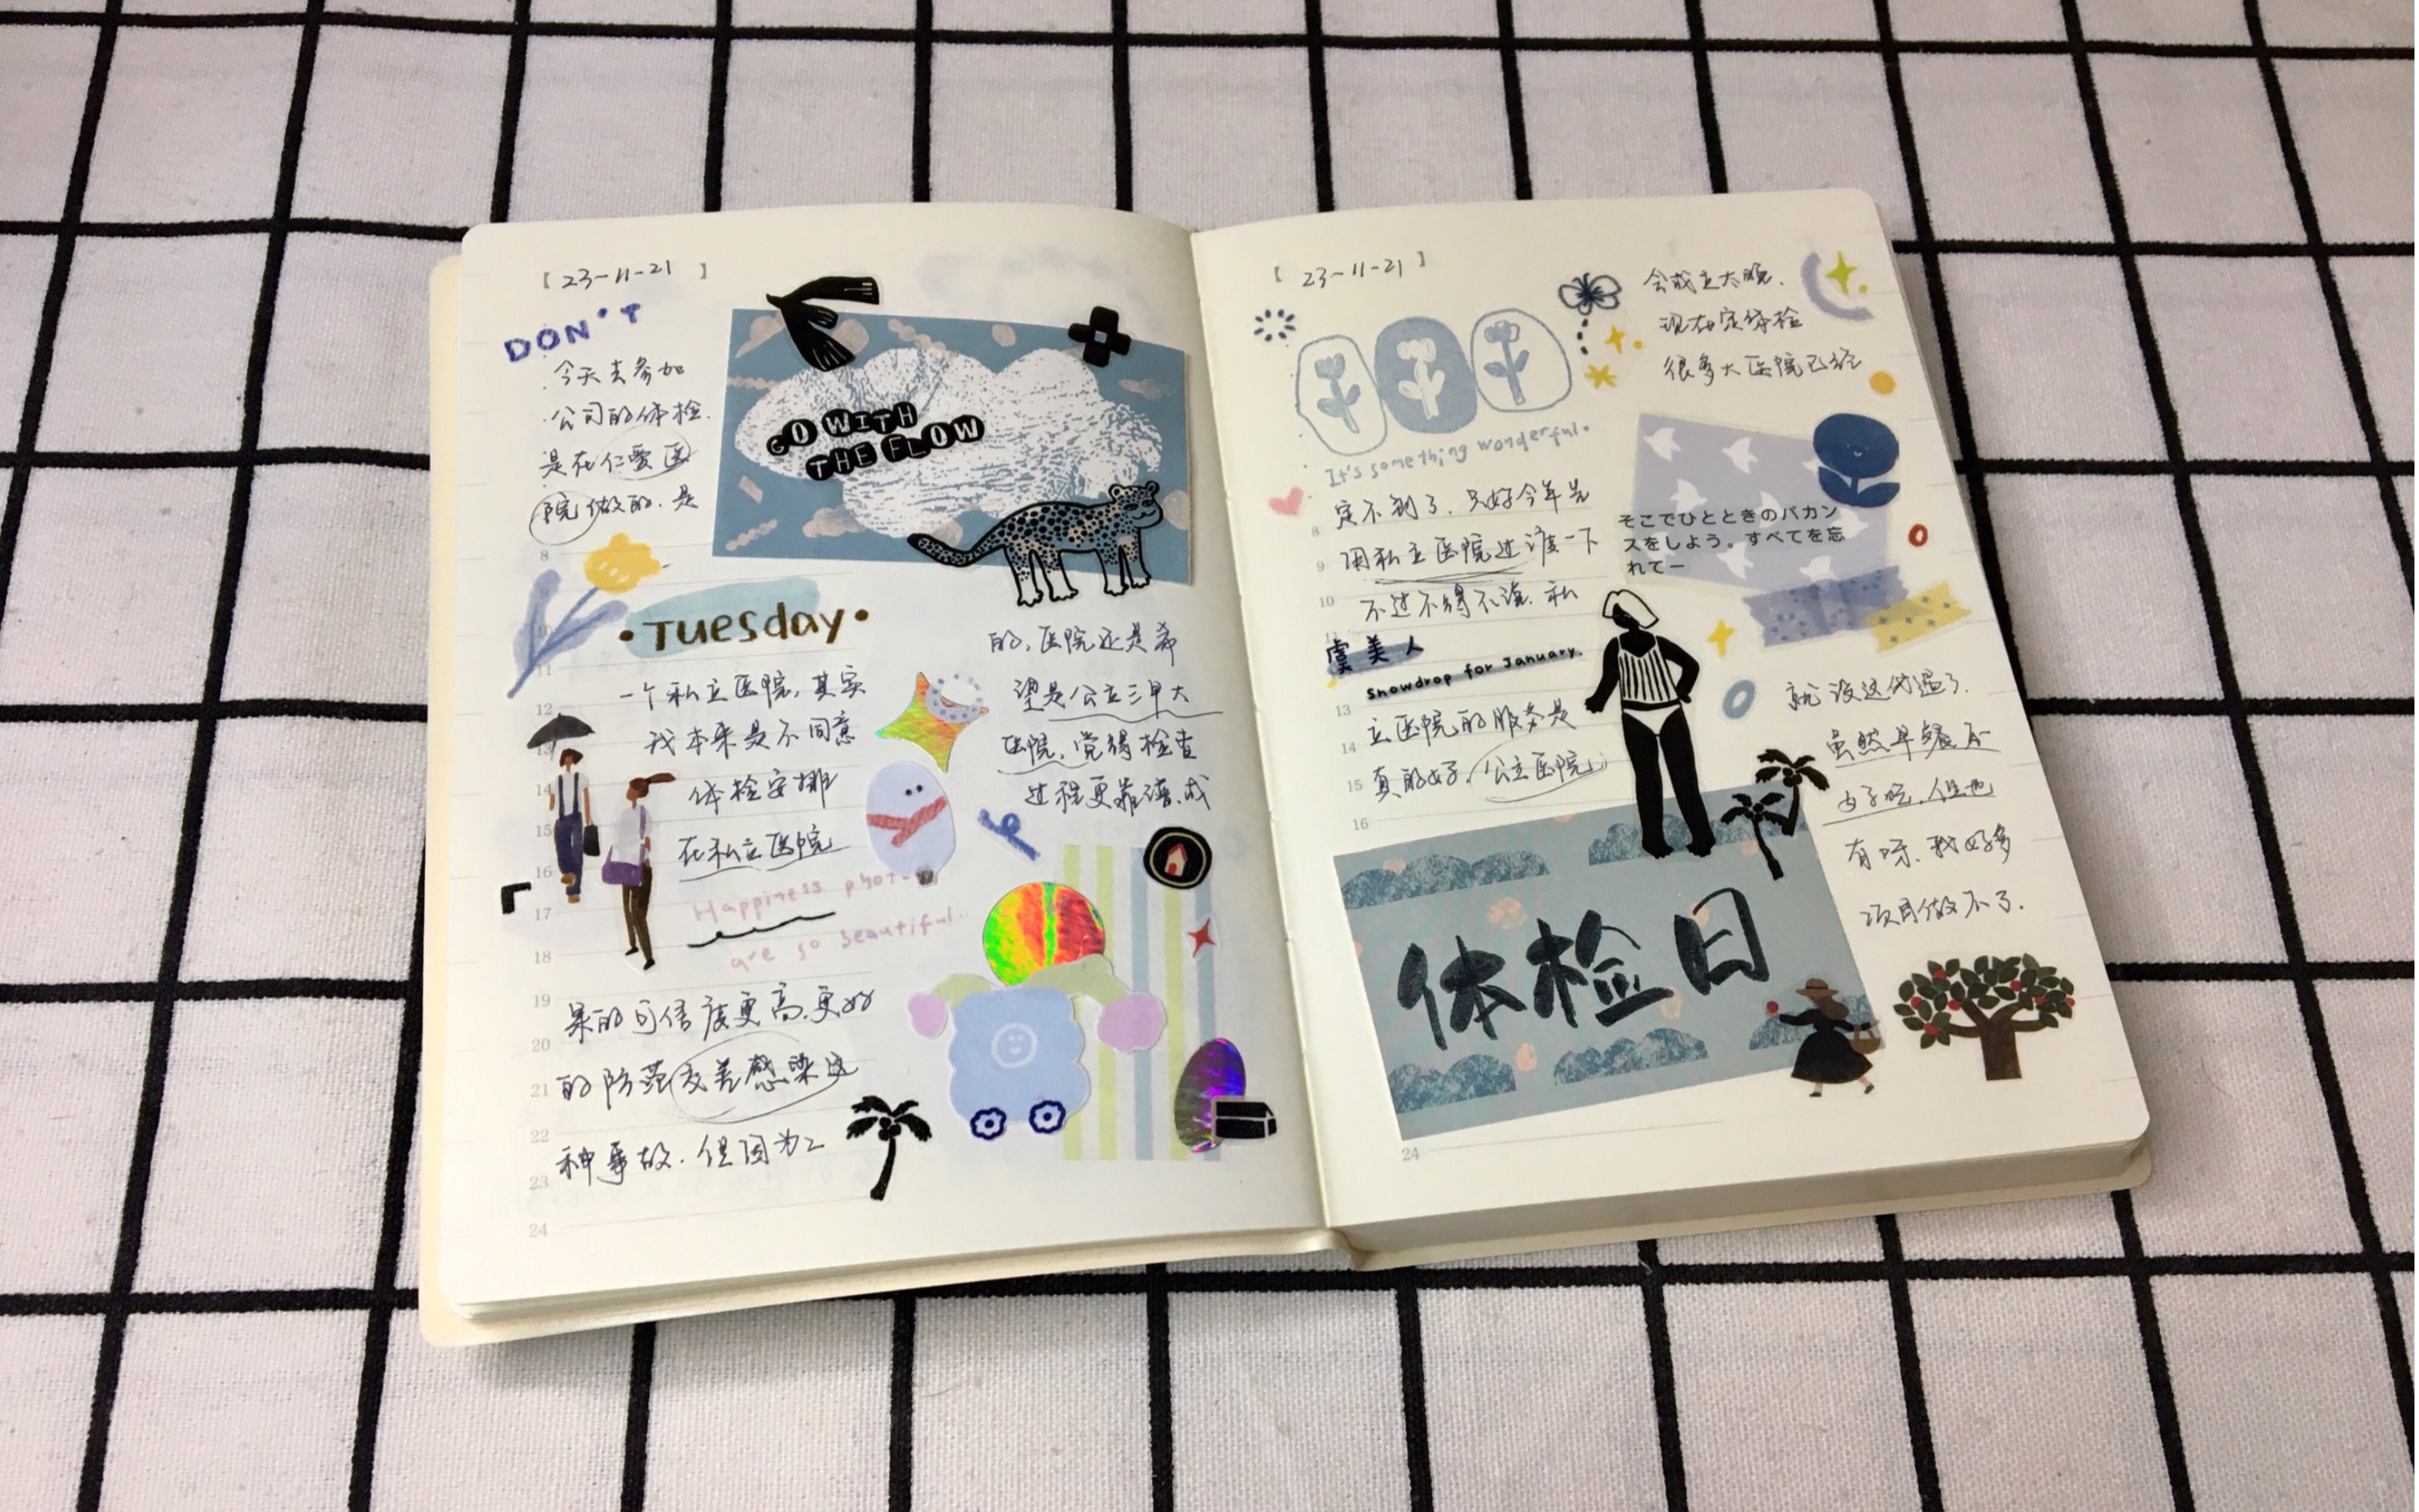 【 23-11-21 】
DON'T
今天去参加
公司的体检.
是在仁爱医
院做的.是
GO WITH
THE FLOW
8
•Tuesday•
11
一个私立医院,其实
12
我本来是不同意
13
体检安排
14
在私立医院
15
16
17
18
Happiness photo
are so beautiful.
的,医院还是希
望是公立三甲大
医院,觉得检查
过程更靠谱.成
19
果的可信度更高.更好
20
的防范交差感染这
21
种事故.但因为工
22
23
24
【 23-11-21 】
会成立太晚.
现在定体检
很多大医院已经
It's something wonderful.
定不到了.只好今年先
8
用私立医院过渡一下
9
不过不得不说.私
10
11
虞美人
Snowdrop for January.
立医院的服务是
13
真的好.公立医院
14
15
16
そこでひとときのバカン
スをしよう。すべてを忘
れてー
就没这待遇了.
虽然早餐不
好吃,但也
有呀.我好多
项目做不了.
体检日
24